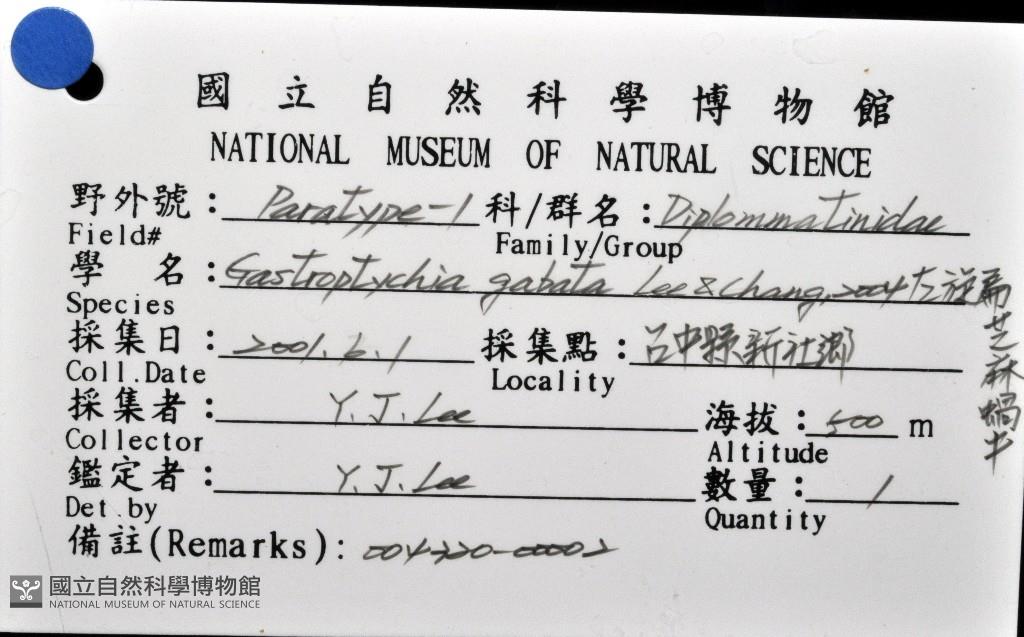 國立自然科學博物館
NATIONAL MUSEUM OF NATURAL SCIENCE
野外號: Paratype-1 科/群名: Diplommatinidae
Field# Family/Group
學名: Gastroptychia gabata Lee & Chang, 2004 左旋扁芝麻蝸牛
Species
採集日: 2001.6.1 採集點: 台中縣新社鄉
Coll.Date Locality
採集者: Y.J.Lee 海拔: 500 m
Collector Altitude
鑑定者: Y.J.Lee 數量: 1
Det.by Quantity
備註(Remarks):
國立自然科學博物館
NATIONAL MUSEUM OF NATURAL SCIENCE